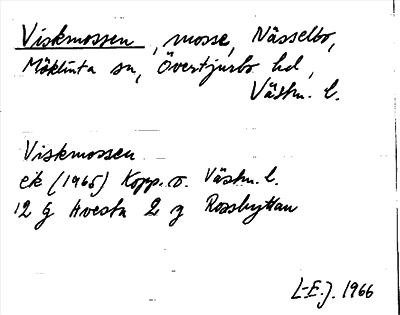 Viskmossen, mosse, Nässelbo,
Möklinta sn, Övertjurbo hd,
Västm. l.
Viskmossen
ek (1965) Kopp. o. Västm. l.
12 G Avesta 2 g Rosshyttan
L-E.J. 1966